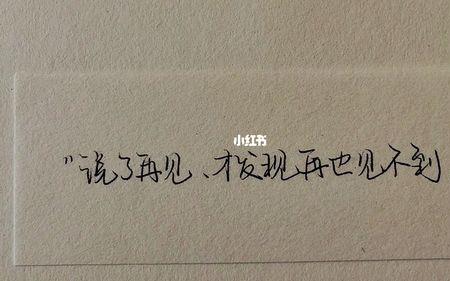 小红书
"说了再见、才发现再也见不到